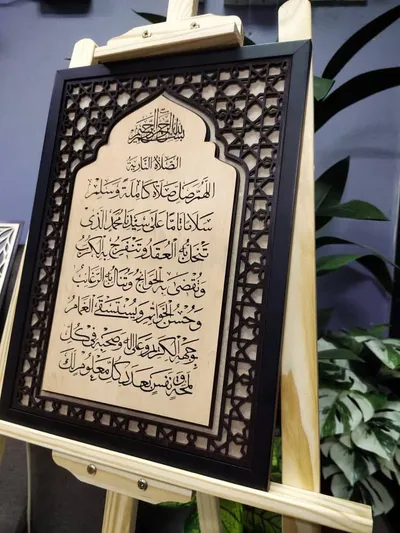 بسم الله الرحمن الرحيم
الصلاة النارية
اللهم صل صلاة كاملة وسلم
سلاما تاما على سيدنا محمد الذي
تنحل به العقد وتنفرج به الكرب
وتقضى به الحوائج وتنال به الرغائب
وحسن الخواتم ويستسقى الغمام
بوجهه الكريم وعلى اله وصحبه في كل
لمحة ونفس بعدد كل معلوم لك